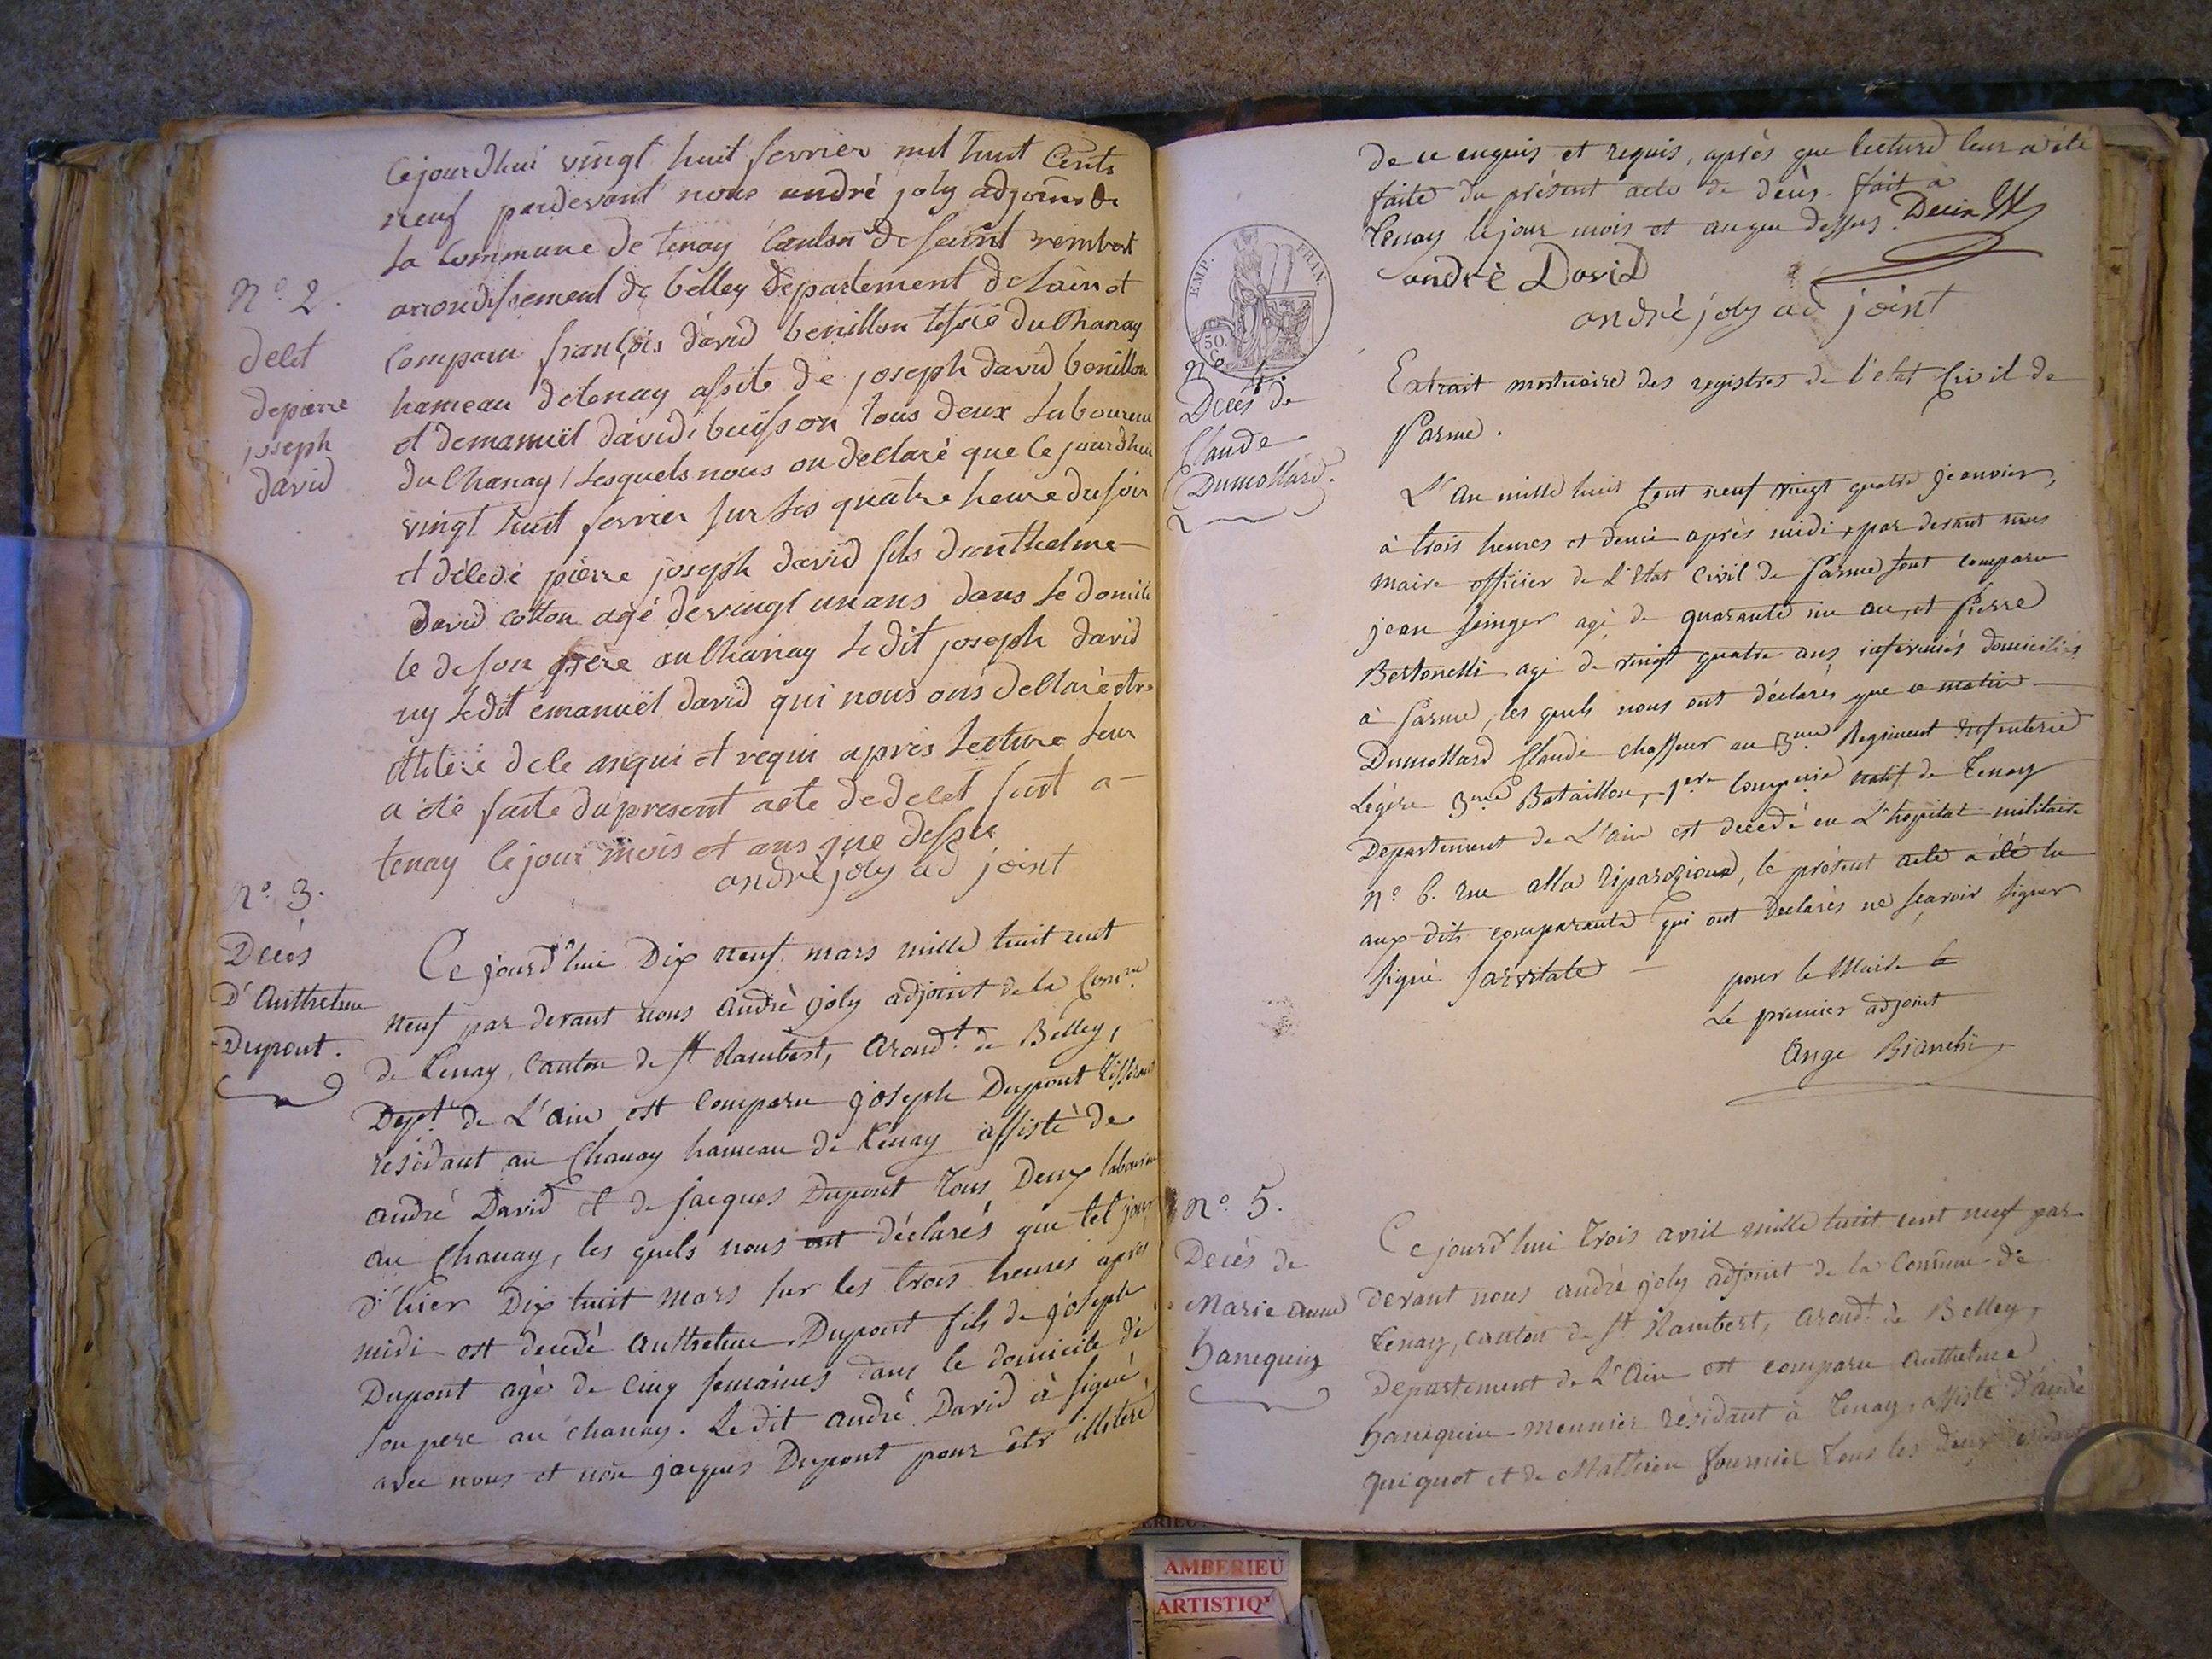 Cejourdhui vingt huit fevrier mil huit Cents
neuf pardevant nous andré joly adjoint de
la Commune de tenay Canton de saint rembert
arrondissement de belley departement de lain et
N° 2.
delet
depierre
joseph
david
Comparu françois david benillon du Chanay
hameau detenay assite de joseph david benillon
et demanuël david buisson tous deux laboureur
du Chanay lesquels nous on declaré que Ce jourdhui
vingt huit fevrier sur les quatre heure du soir
et délédé pierre joseph david fils danthelme
david cotton agé de vingt un ans dans le domici
le de son frère au Chanay le dit joseph david
ny ledit émanuël david qui nous ons declaré etre
illitéré de le anqui et requi apres lecture leur
a été faite du present acte de delet fait a
tenay le jour mois et ans que dessu
andré joly ad joint
N° 3.
Decès
D'Anthelme
Dupont.
Ce jourd'hui Dix neuf mars mille huit cent
neuf par devant nous andrè joly adjoint de la Comne
de Tenay, Canton de St Rambert, Arondt de Belley,
Dept de L'ain est comparu joseph Dupont Tisserant
residant au Chanay hameau de Tenay assistè de
andré David et de jacques Dupont tous Deux laboureur
au Chanay, les quels nous ont déclarés que le jour
d'hier Dix huit mars sur les trois heures après
midi est decedé Anthelme Dupont fils de joseph
Dupont agé de cinq semaines dans le domicile de
son pere au chanay. Le dit andré David à signé
avec nous et non jacques Dupont pour être illitéré
de ce enquis et requis, après que lecture leur a été
faite du présent acte de decès. fait a
Tenay le jour mois et an que dessus.
andrè David
andré joly ad joint
EMP. FRAN.
50 C.
N° 4.
Decès de
Claude
Dumollard.
Extrait mortuaire des registres de l'état Civil de
Parme.
L'An mille huit Cent neuf vingt quatre Jeanvier,
à trois heures et demie après midi par devant nous
maire officier de L'Etat Civil de Parme sont comparu
jean Singer agé de quarante un an, et Pierre
Bertonelli agé de vingt quatre ans infirmiés domiciliés
à Parme, les quels nous ont déclarés que ce matin
Dumollard Claude chasseur au 3me Regiment d'infanterie
Légère 3me Bataillon, 1ere Compnie natif de Tenay
Departement de L'ain est decedé en L'hopital militaire
N° 6. rue alla, le présent acte a été lu
aux dits comparants qui ont declarés ne sçavoir signer
signé
pour le Maire
Le premier adjoint
Ange Bianchi
N° 5.
Decès de
Marie anne
hanequin
Ce jourd'hui trois avril mille huit cent neuf par
devant nous andré joly adjoint de la Commune de
Tenay, canton de St Rambert, arondt de Belley,
Departement de L'Ain est comparu Anthelme
hanequin meunier résidant à Tenay, assisté d'andré
quiquot et de Mathieu fournier tous les deux residant
AMBERIEU
ARTISTIQ